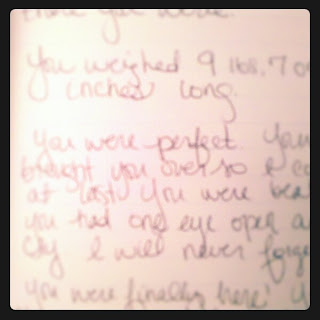 there you were.
You weighed 9 lbs. 7 o
inches long.
You were perfect. You
brought you over so I co
at last. You were bea
you had one eye open a
cry I will never forge
You were finally here! Y